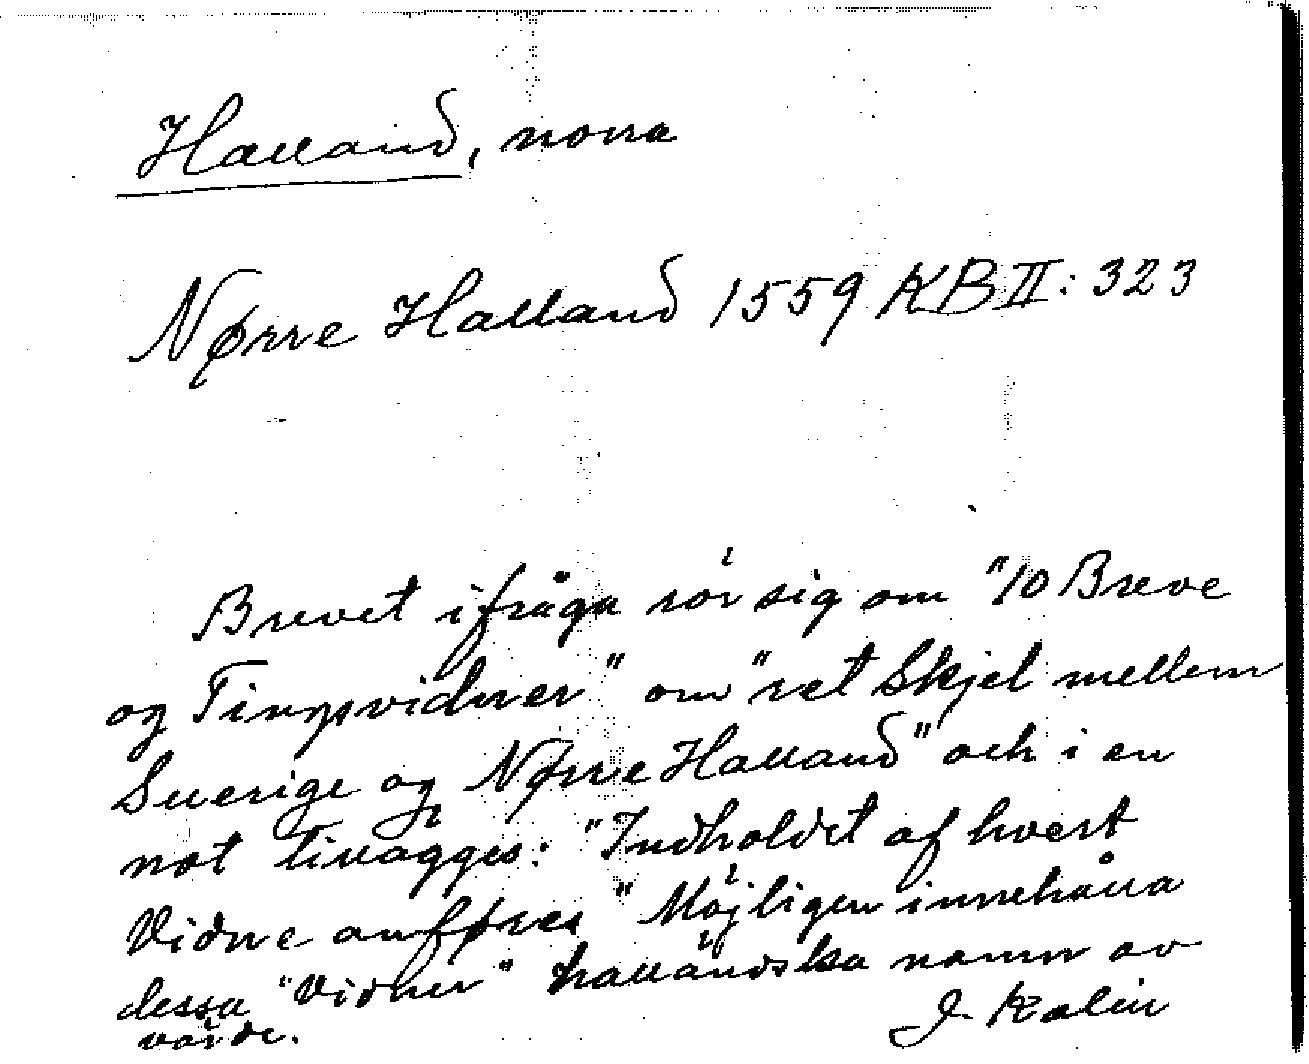 Halland, norra
Nørre Halland 1559 KB II: 323
Brevet ifråga rör sig om "10 Breve
og Tingsvidner" om "ret Skjel mellem
Sverige og Nørre Halland" och i en
not tillägges: "Indholdet af hvert
Vidne anføres" Möjligen innehålla
dessa "Vidner" halländska namn av
värde. J. Kalén